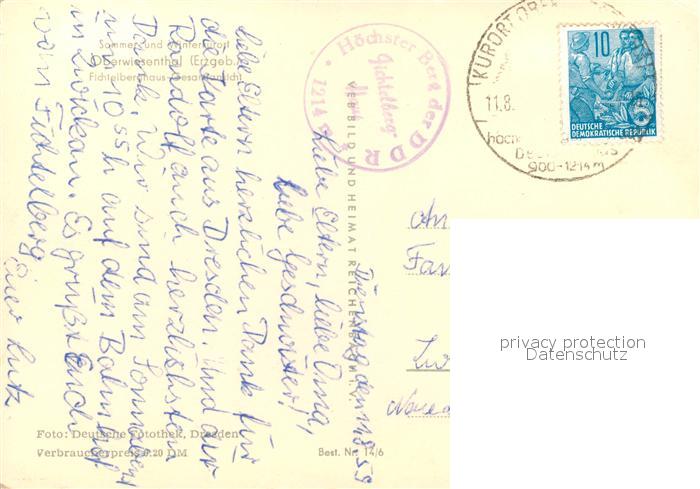 Sommer- und Winterkurort
Oberwiesenthal (Erzgeb.)
Fichtelberghaus - Gesamtansicht
Höchster Berg der DDR
Fichtelberg
1214 m
KURORT OBER
11.8.
900-1214 m
10
DEUTSCHE
DEMOKRATISCHE REPUBLIK
VEB BILD UND HEIMAT REICHENBACH I. V.
Dienstag den 11.8.59
Liebe Eltern, liebe Oma,
liebe Geschwister!
Liebe Eltern herzlichen Dank für
die Karte aus Dresden. Und an
Randolf auch herzlichsten
Dank. Wir sind am Sonnabend
um 10 55h auf dem Bahnhof
in Zwickau. Es grüßt Euch
vom Fichtelberg
Euer Lutz
An
Fam
Foto: Deutsche Fotothek, Dresden
Verbraucherpreis 0.20 DM
Best. Nr. 14/6
privacy protection
Datenschutz